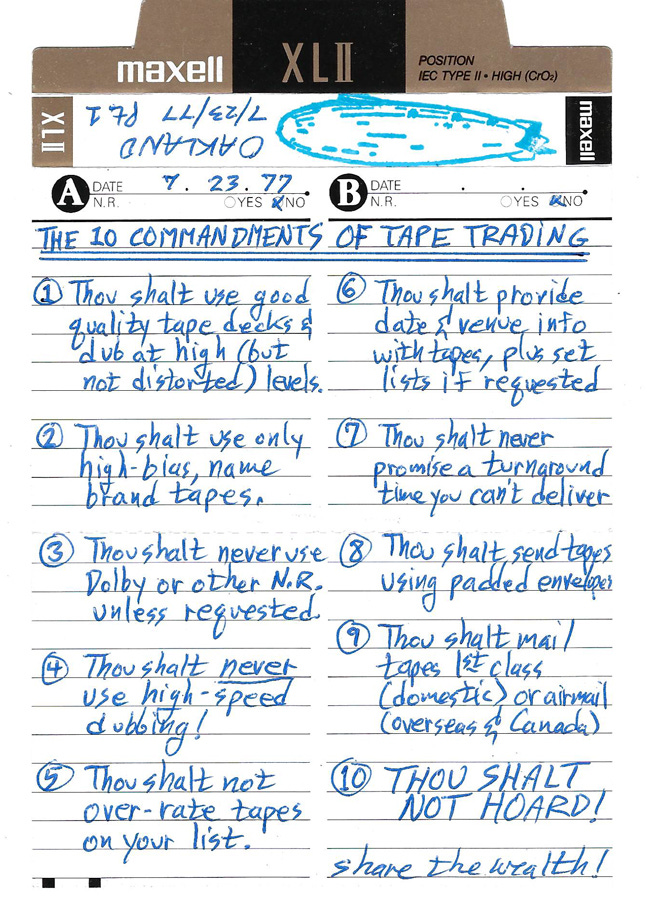 maxell XLII POSITION
IEC TYPE II • HIGH (CrO₂)
XLII
OAKLAND
7/23/77 Pt.1
maxell
A DATE 7. 23. 77
N.R. YES NO
B DATE . .
N.R. YES NO
THE 10 COMMANDMENTS OF TAPE TRADING
① Thou shalt use good
quality tape decks &
dub at high (but
not distorted) levels.
② Thou shalt use only
high-bias, name
brand tapes.
③ Thou shalt never use
Dolby or other N.R.
unless requested.
④ Thou shalt never
use high-speed
dubbing!
⑤ Thou shalt not
over-rate tapes
on your list.
⑥ Thou shalt provide
date & venue info
with tapes, plus set
lists if requested
⑦ Thou shalt never
promise a turnaround
time you can't deliver
⑧ Thou shalt send tapes
using padded envelopes
⑨ Thou shalt mail
tapes 1st class
(domestic) or airmail
(overseas & Canada)
⑩ THOU SHALT
NOT HOARD!
share the wealth!